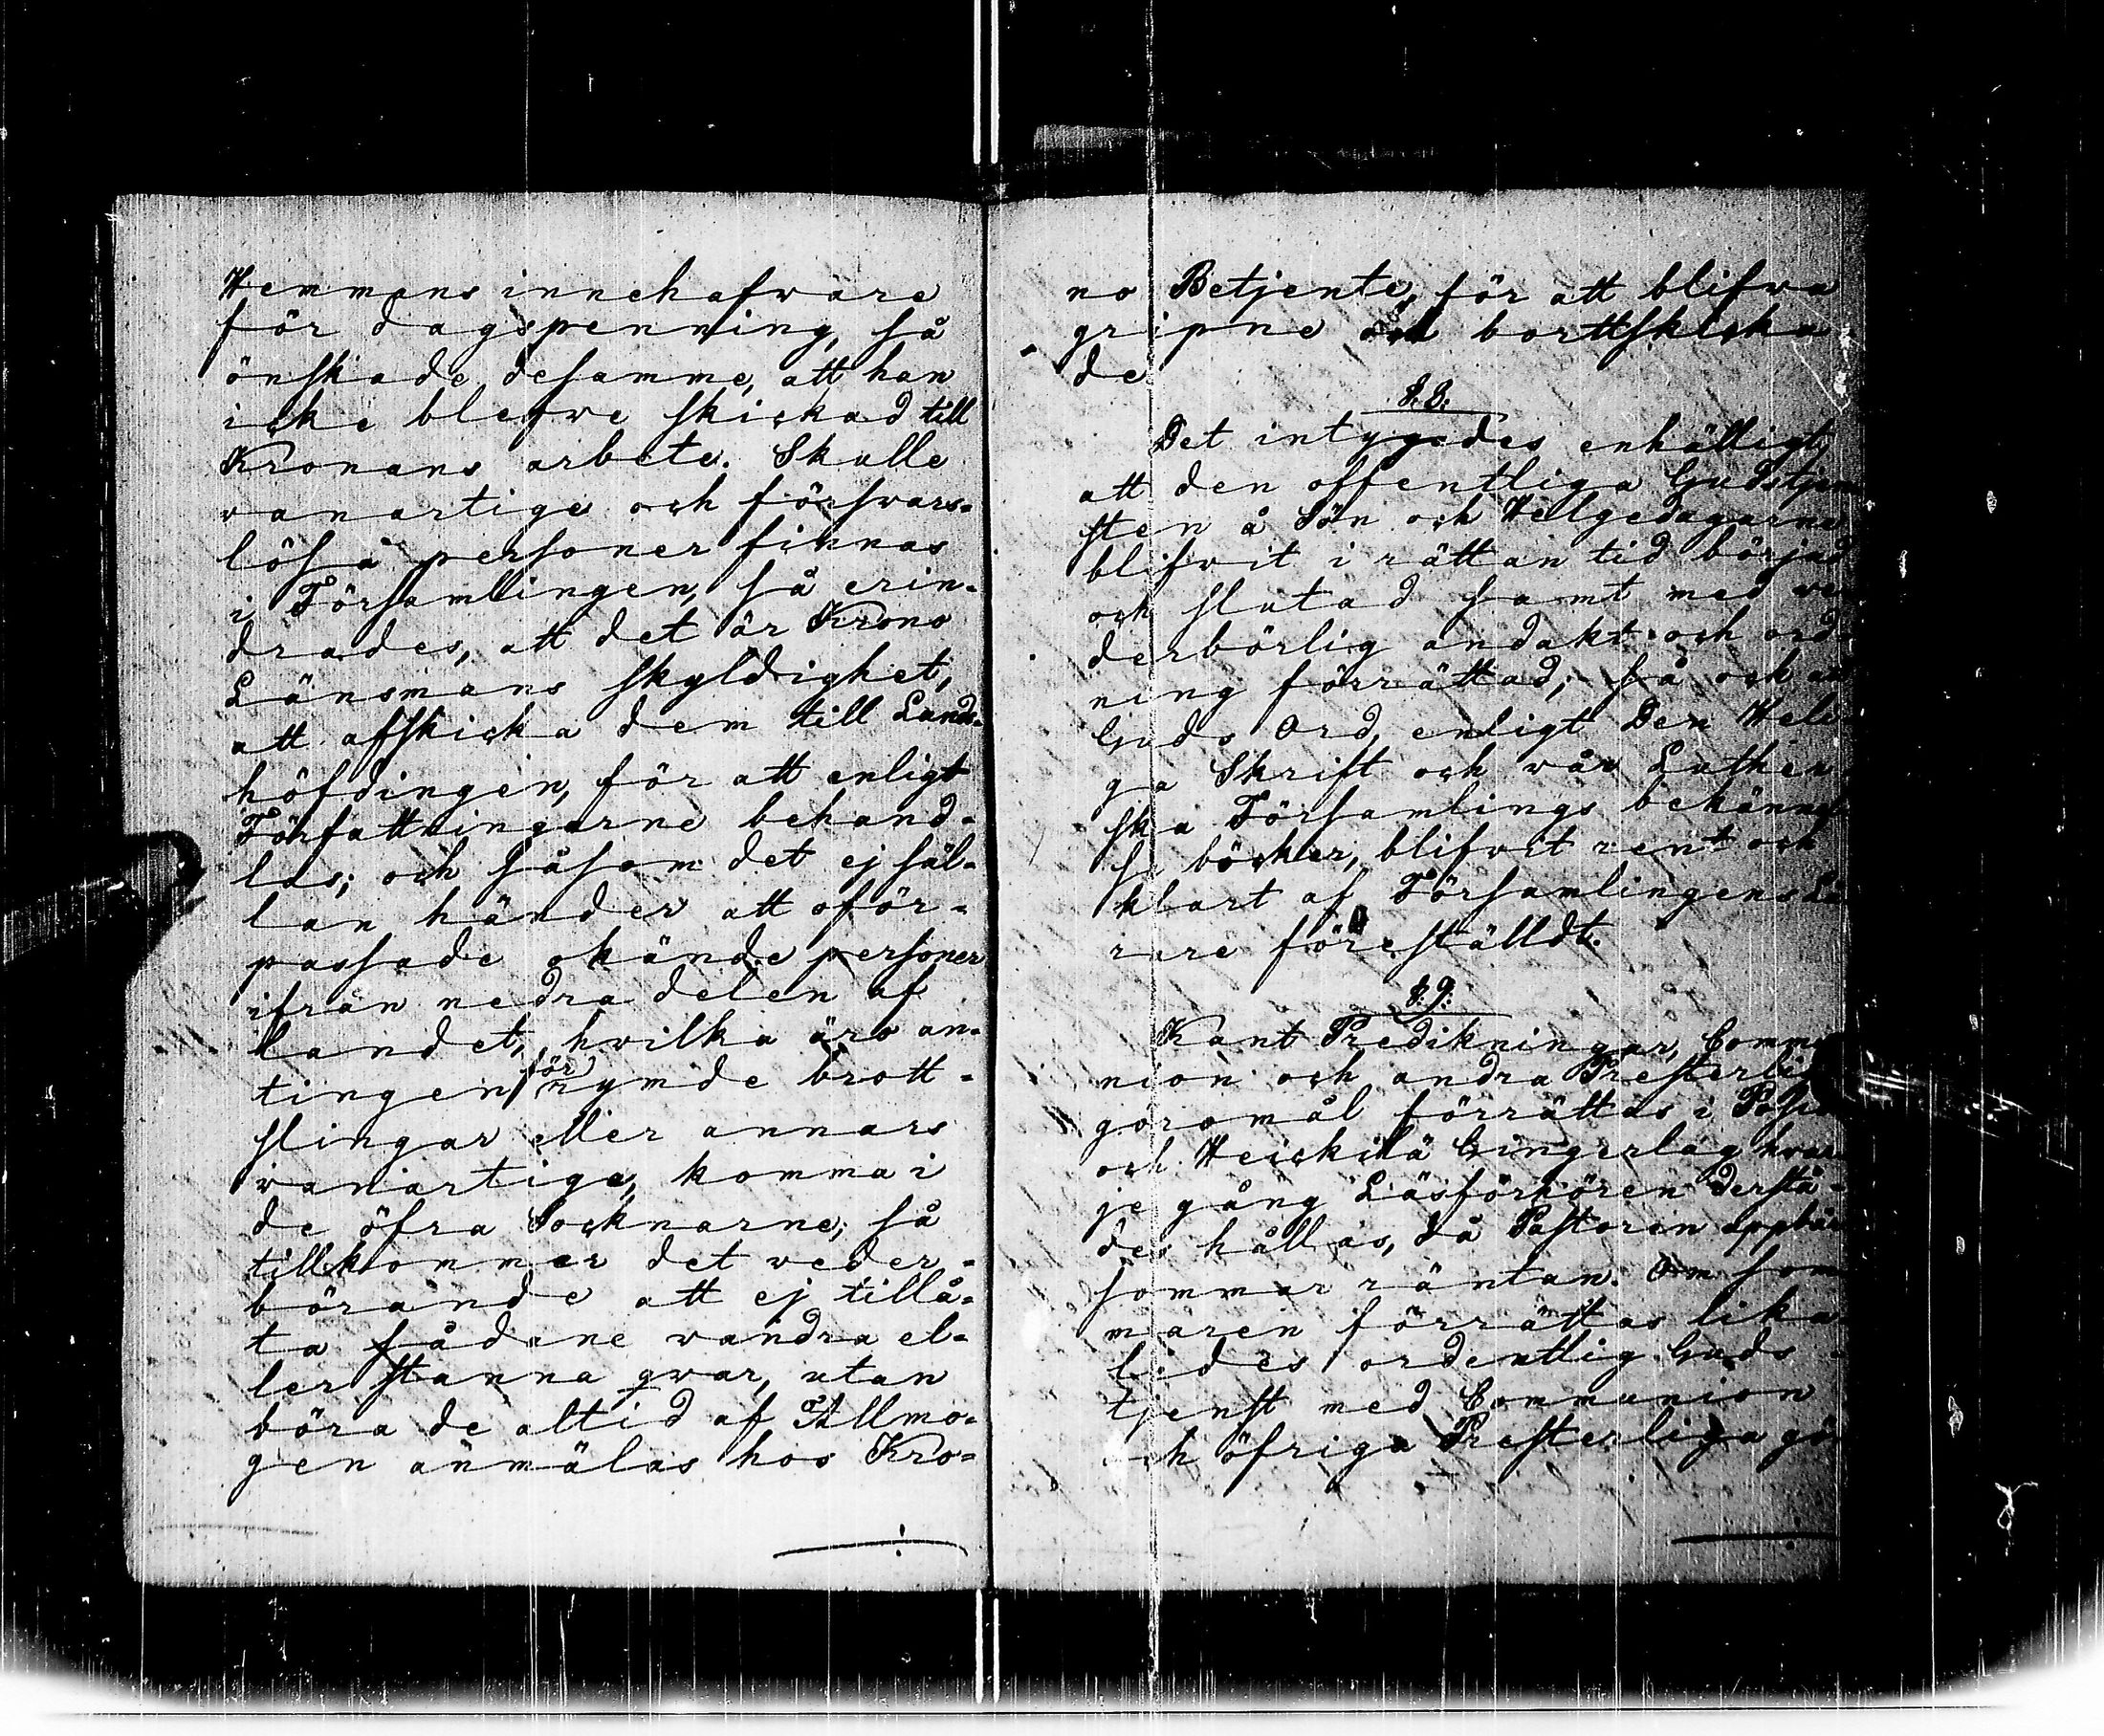 Hemmans innehafware
för dagspenning, så
önskade desamme, att han
icke blefwe skickad till
Kronans arbete. Skulle
wanartige och förswars-
lösa personer finnas
i Församlingen, så erin-
drades, att det är Krono
Länsmans skyldighet,
att afskicka dem till Lands-
höfdingen, för att enligt
Författningarne behand-
las; och såsom det ej säl-
lan händer att oför-
passade okände personer
ifrån nedra delen af
landet, hvilka äro an-
tingen förrymde brott-
slingar eller annars
wanartige, komma i
de öfra Socknarne; så
tillkommer det weder-
börande att ej tillå-
ta sådane wandra el-
ler stanna qvar, utan
böra de altid af Allmo-
gen anmälas hos Kro-
no Betjente, för att blifwa
gripne och bortskicka-
de
§. 8.
Det intygades enhälligt,
att den offentliga Gudstjen
sten å Sön och Helgedagarne
blifwit i rättan tid börjad
och slutad samt med we
derbörlig andakt och ord-
ning förrättad; så och att
Guds Ord, enligt Den Heli-
ga Skrift och wår Luther
ska Församlings bekännel
se böcker, blifwit rent och
klart af Församlingens Lä
rare föreställdt.
§. 9.
Kant Predikningar, Commu
nion och andra Presterli
göromål förrättas i
och Heickilä Gingerlag hwar
je gång Läsförhören derstä-
des hållas, då Pastorin uppbär
sommar räntan. Om som
maren förrättas lika
ledes ordentlig Guds-
tjenst med Communion
och öfriga Presterliga gö